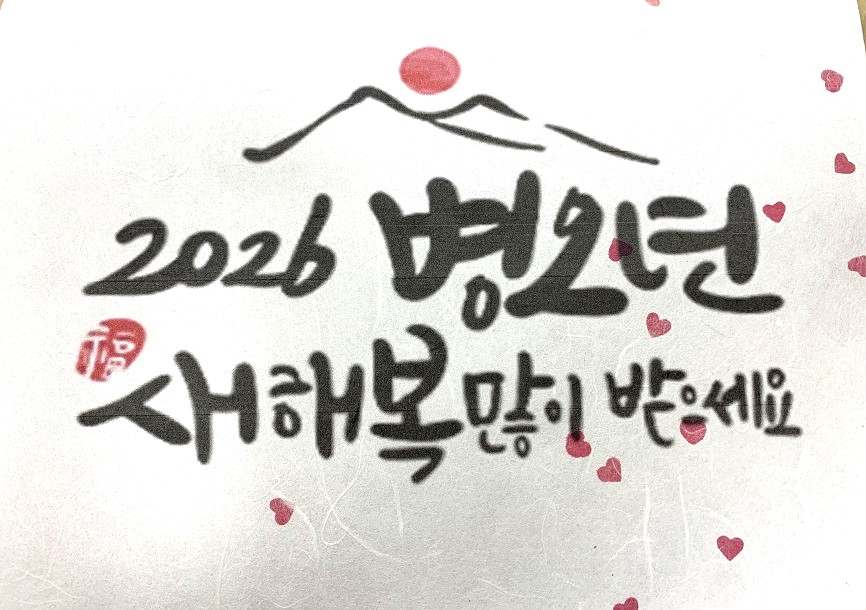 2026 병오년
福
새해 복 많이 받으세요